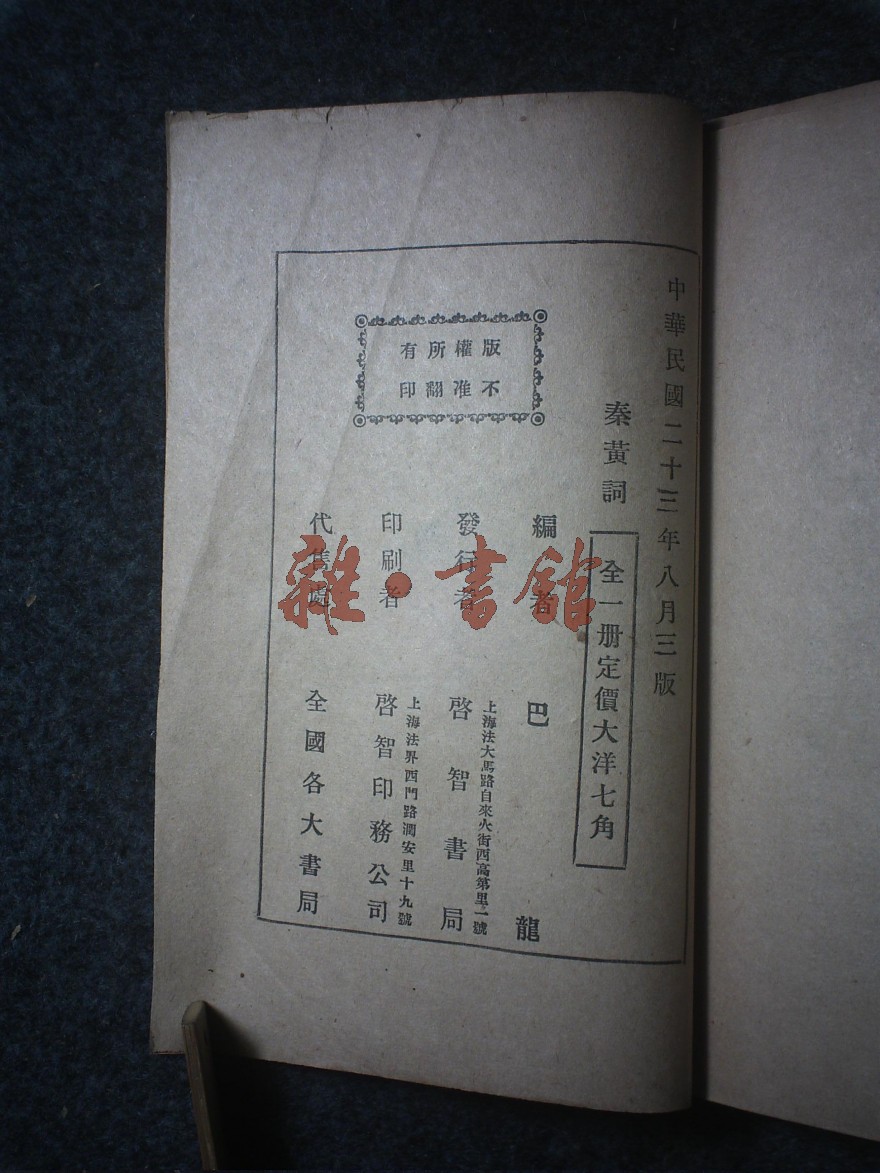 中華民國二十三年八月三版
秦黃詞
全一册定價大洋七角
編者 巴龍
上海法大馬路自來火街西高第里一號
發行者 啓智書局
上海法界西門路潤安里十九號
印刷者 啓智印務公司
代售處 全國各大書局
版權所有
不准翻印
雜·書館